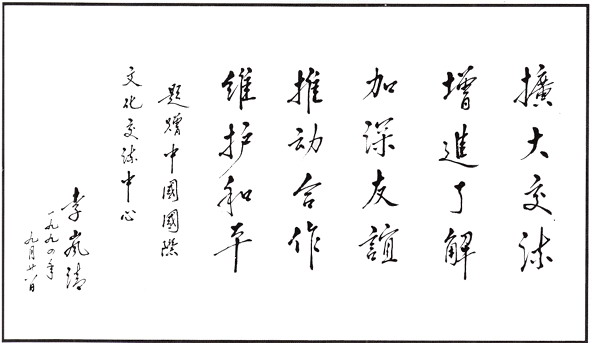 擴大交流
增進了解
加深友誼
推动合作
维护和平
题赠中國國際
文化交流中心
李岚清
一九九四年
九月廿八日